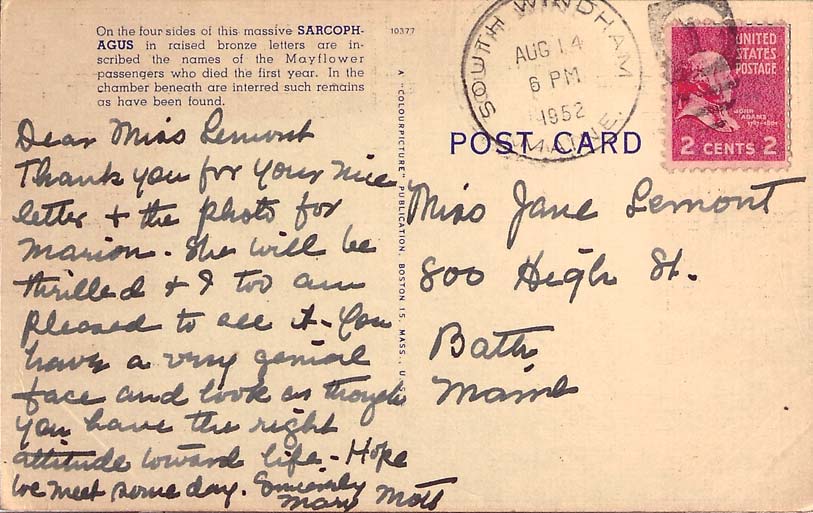 On the four sides of this massive SARCOPH-
AGUS in raised bronze letters are in-
scribed the names of the Mayflower
passengers who died the first year. In the
chamber beneath are interred such remains
as have been found.
10377
A "COLOURPICTURE" PUBLICATION, BOSTON 15, MASS., U.S.A.
SOUTH WINDHAM
AUG 14
6 PM
1952
MAINE.
UNITED
STATES
POSTAGE
JOHN
ADAMS
1797-1801
2 CENTS 2
POST CARD
Dear Miss Lemont
Thank you for your nice
letter + the photo for
Marion. She will be
thrilled + I too am
pleased to see it - You
have a very genial
face and look as though
you have the right
attitude toward life - Hope
we meet some day. Sincerely
Mary Mott
Miss Jane Lemont
800 High St.
Bath
Maine